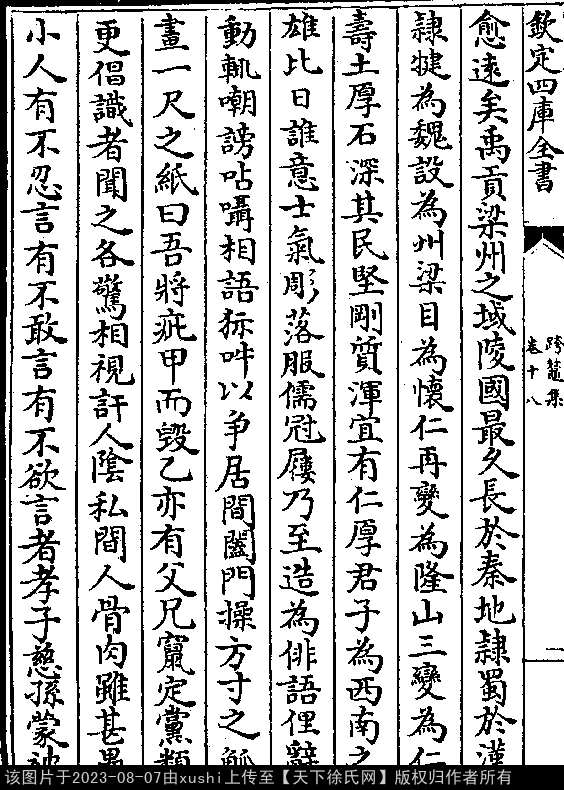 欽定四庫全書
跨鼇集
卷十八
愈遠矣禹貢梁州之域陵國最久長於秦地隷蜀於漢
隷犍為魏設為州梁目為懷仁再變為隆山三變為仁
壽土厚石深其民堅剛質渾宜有仁厚君子為西南之
雄比日誰意士氣彫落服儒冠屨乃至造為俳語俚辭
動輒嘲謗呫囁相語狋吽以争居閭闔門操方寸之觚
畫一尺之紙曰吾將疵甲而毀乙亦有父兄竄定黨類
更倡識者聞之各驚相視訐人陰私間人骨肉雖甚愚
小人有不忍言有不敢言有不欲言者孝子慈孫蒙
该图片于2023-08-07由xushi上传至【天下徐氏网】版权归作者所有